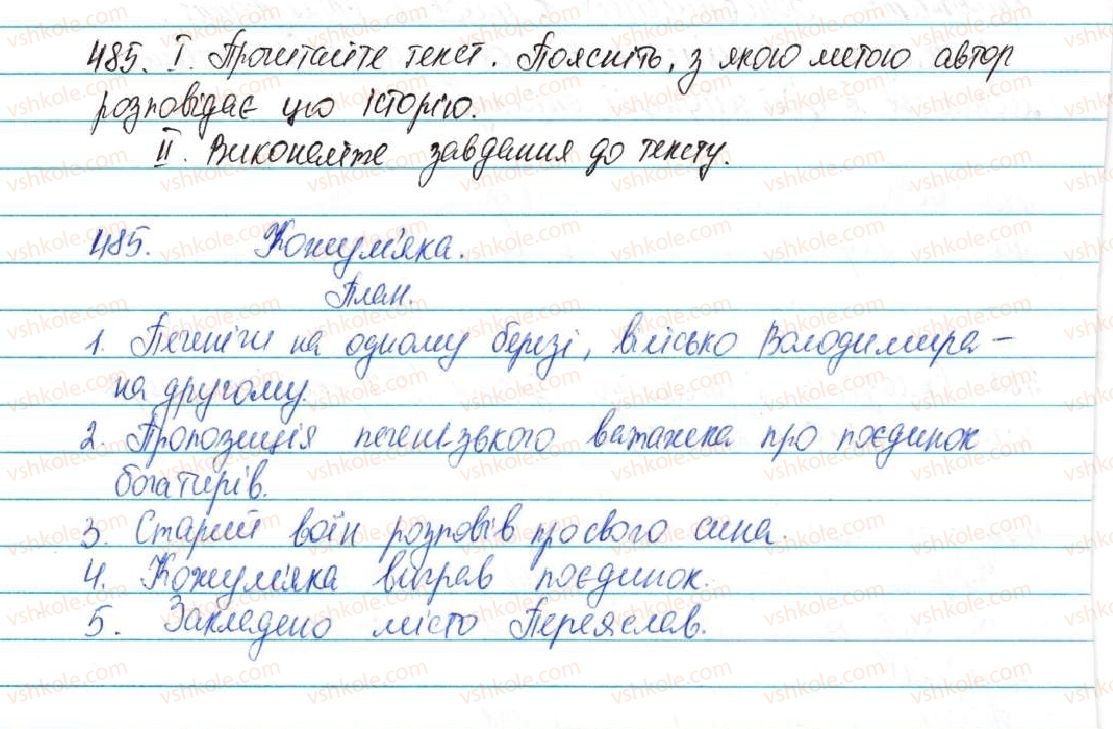 485. I. Прочитайте текст. Поясніть, з якою метою автор
розповідає цю історію.
II. Виконайте завдання до тексту.
485. Кожум'яка.
План.
1. Печеніги на одному березі, військо Володимира –
на другому.
2. Пропозиція печенізького ватажка про поєдинок
богатирів.
3. Старий воїн розповів про свого сина.
4. Кожум'яка виграв поєдинок.
5. Закладено місто Переяслав.